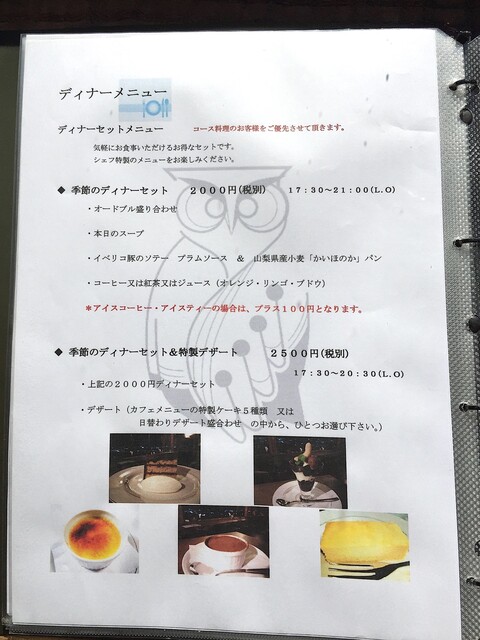 ディナーメニュー
ディナーセットメニュー　コース料理のお客様をご優先させて頂きます。
気軽にお食事いただけるお得なセットです。
シェフ特製のメニューをお楽しみください。
◆ 季節のディナーセット　２０００円(税別)　１７：３０～２１：００(L.O)
・オードブル盛り合わせ
・本日のスープ
・イベリコ豚のソテー　プラムソース　＆　山梨県産小麦「かいほのか」パン
・コーヒー又は紅茶又はジュース（オレンジ・リンゴ・ブドウ）
＊アイスコーヒー・アイスティーの場合は、プラス１００円となります。
◆ 季節のディナーセット＆特製デザート　２５００円(税別)
１７：３０～２０：３０(L.O)
・上記の２０００円ディナーセット
・デザート（カフェメニューの特製ケーキ５種類　又は
日替わりデザート盛合わせ　の中から、ひとつお選び下さい。）